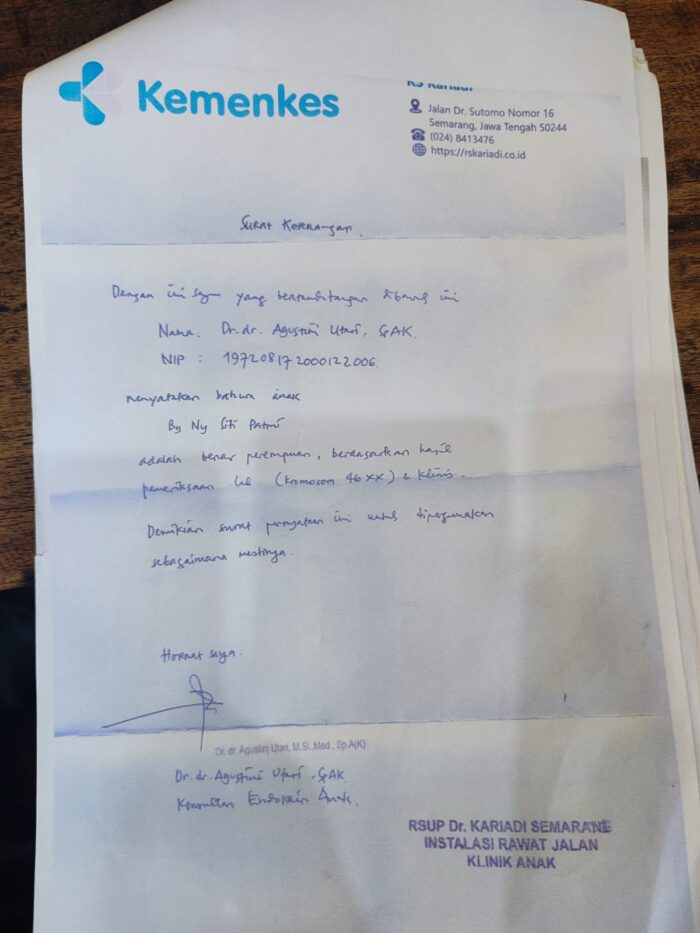 Kemenkes
RS Kariadi
Jalan Dr. Sutomo Nomor 16
Semarang, Jawa Tengah 50244
(024) 8413476
https://rskariadi.co.id
SURAT KETERANGAN.
Dengan ini saya yang bertandatangan dibawah ini
Nama: Dr. dr. Agustini Utari, SpAK.
NIP : 197208172000122006
menyatakan bahwa anak
By Ny Siti Patmi
adalah benar perempuan, berdasarkan hasil
pemeriksaan lab (kromosom 46 XX) & klinis.
Demikian surat pernyataan ini untuk dipergunakan
sebagaimana mestinya.
Hormat saya.
Dr. dr. Agustini Utari, M.Si.,Med., Sp.A(K)
Dr. dr. Agustini Utari, SpAK
Konsultan Endokrin Anak.
RSUP Dr. KARIADI SEMARANG
INSTALASI RAWAT JALAN
KLINIK ANAK